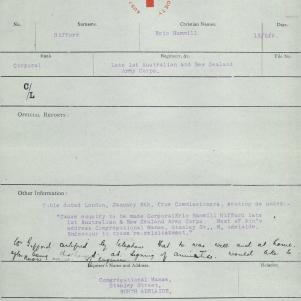 No.
Surname.
Christian Names.
Date.
Gifford
Eric Hammill
Rank
Regiment, &c.
File No.
Corporal
Late 1st Australian and New Zealand
Army Corps.
C/
/L
OFFICIAL REPORTS:
Other Information:
Cable dated London, January 8th, from Commissioners, reading as under:-
"Cause enquiry to be made Corporal Eric Hammill Gifford late
1st Australian & New Zealand Army Corps. Next of kin's
address Congregational Manse, Stanley St., N. Adelaide.
Mr Gifford by telephone that he was well and at home.
after being at signing of armistice. would like to
Enquirer's Name and Address.
Relation.
Congregational Manse,
Stanley Street,
NORTH ADELAIDE.